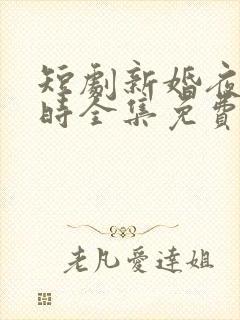 短劇新婚夜
時全集免費
老凡愛達姐